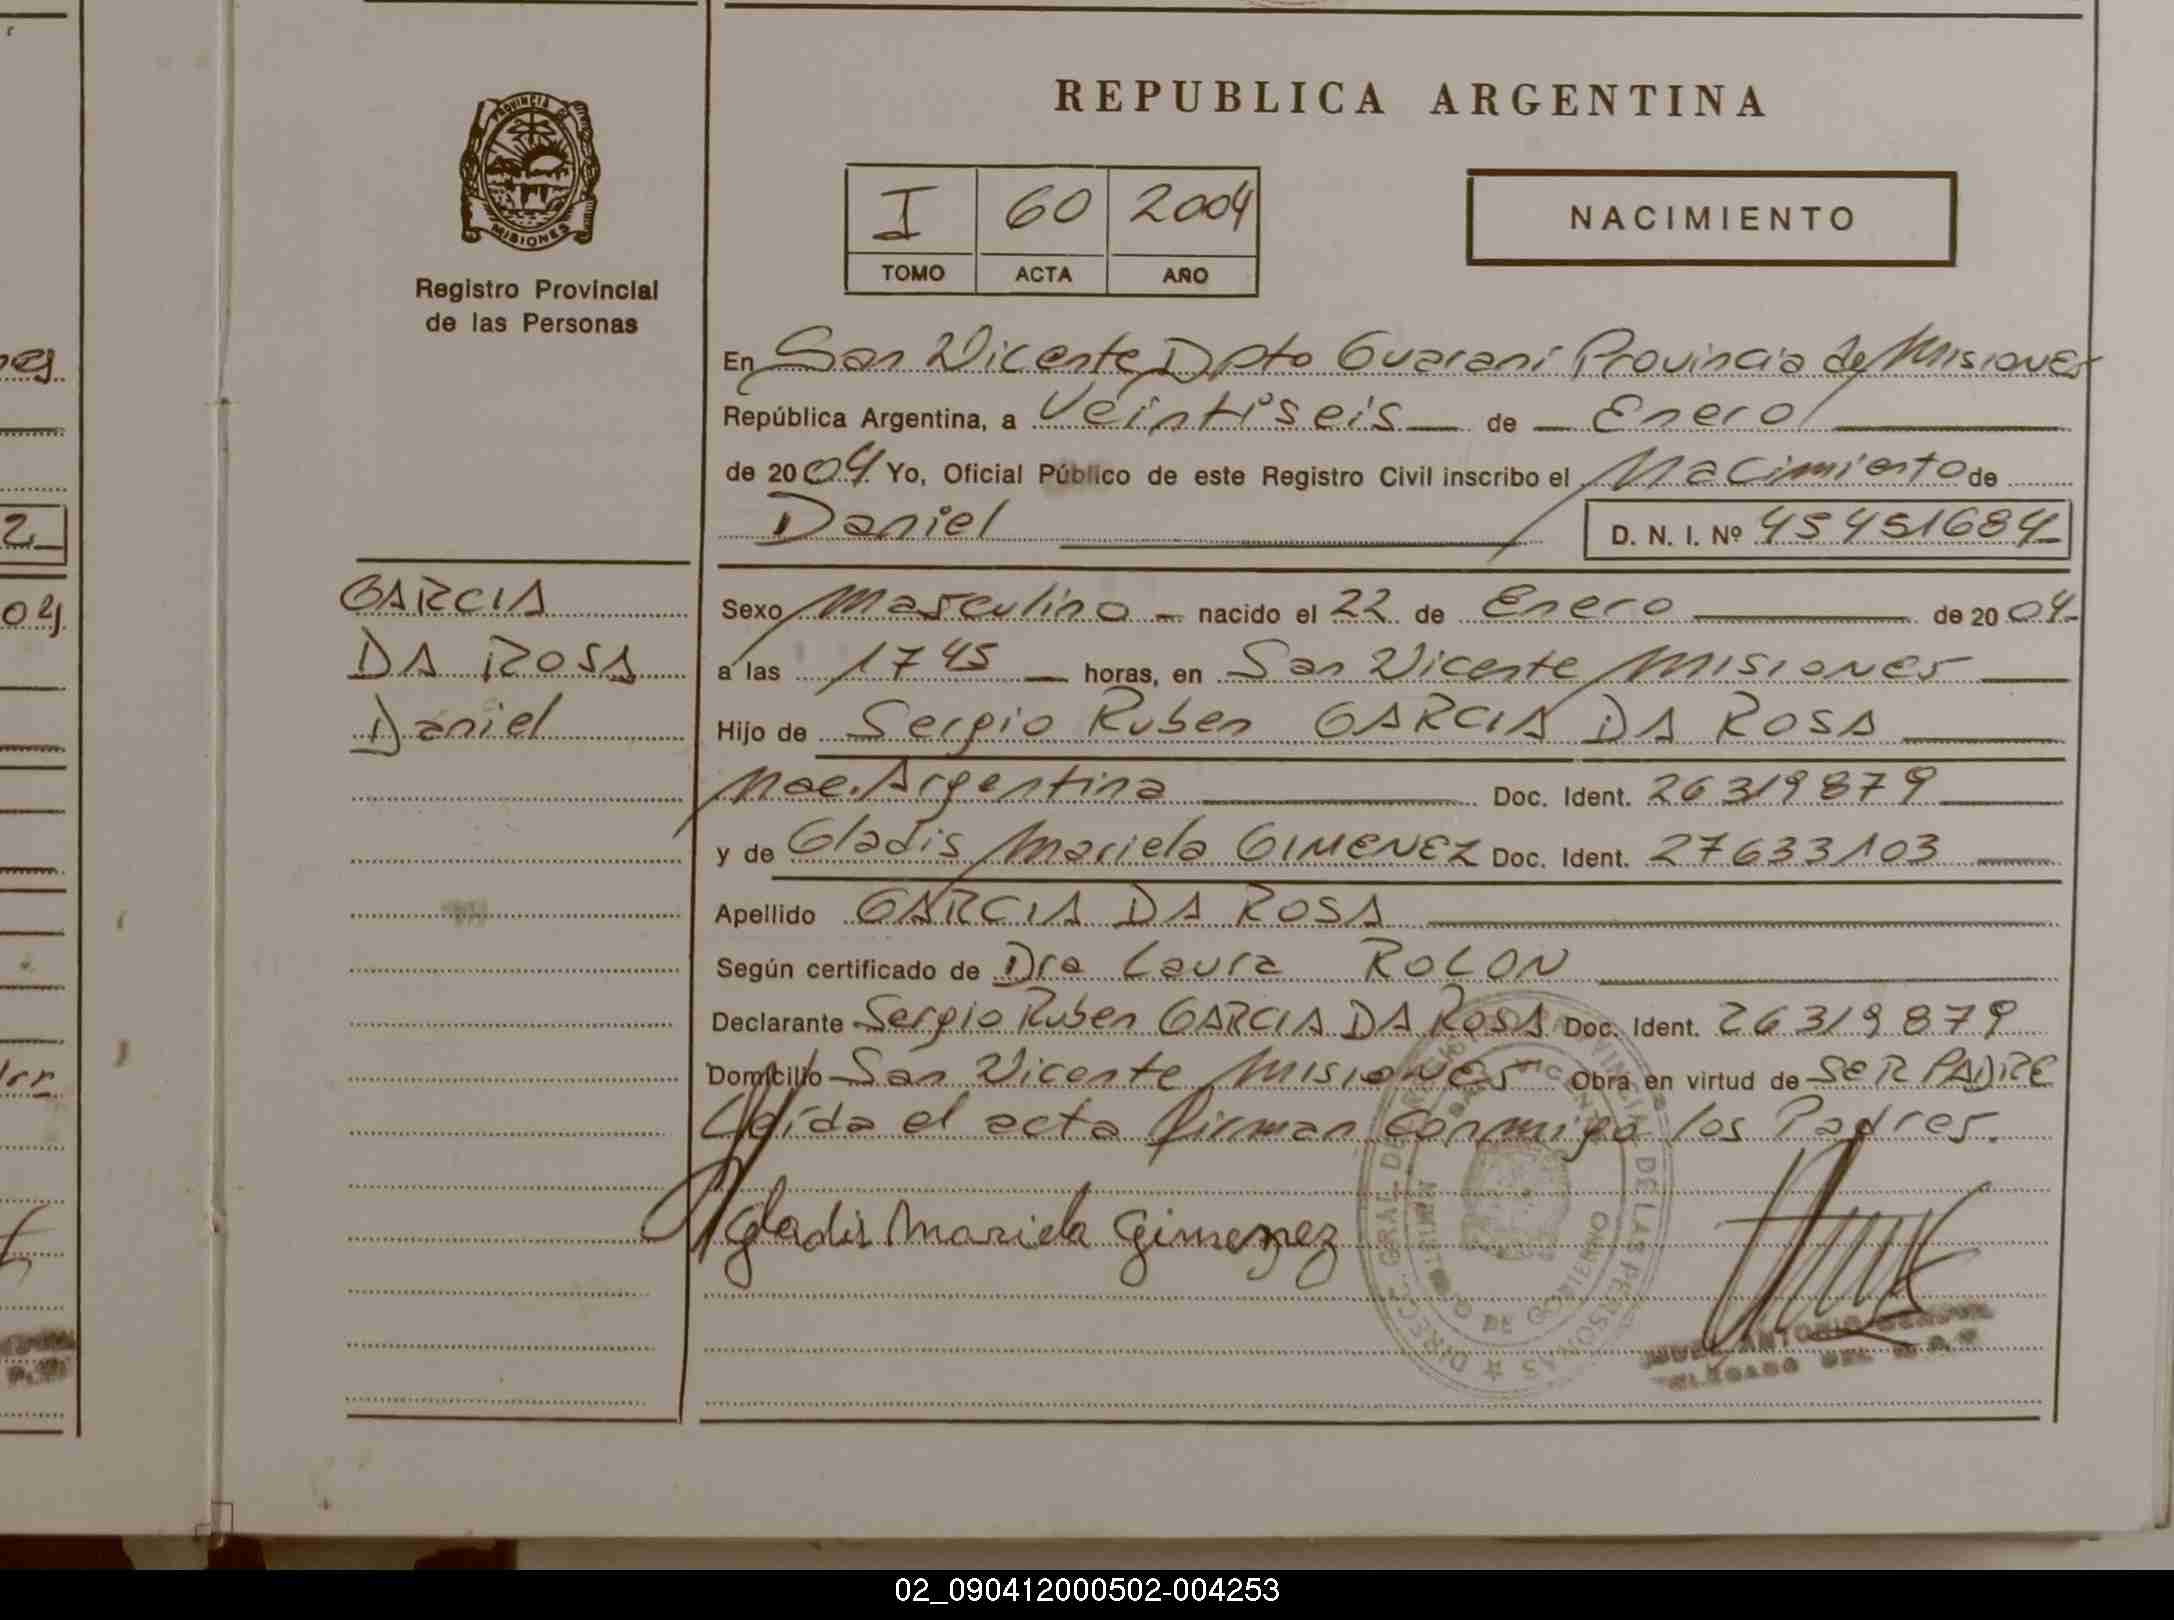 PROVINCIA DE
MISIONES
Registro Provincial
de las Personas
REPUBLICA ARGENTINA
I 60 2004
TOMO ACTA AÑO
NACIMIENTO
En San Vicente Dpto Guaraní Provincia de Misiones
República Argentina, a Veintiseis de Enero
de 2004 Yo, Oficial Público de este Registro Civil inscribo el Nacimiento de
Daniel D. N. I. Nº 45451684
GARCIA
DA ROSA
Daniel
Sexo Masculino nacido el 22 de Enero de 2004
a las 17 45 horas, en San Vicente Misiones
Hijo de Sergio Ruben GARCIA DA ROSA
Nac. Argentina Doc. Ident. 26319879
y de Gladis Mariela GIMENEZ Doc. Ident. 27633103
Apellido GARCIA DA ROSA
Según certificado de Dra Laura ROLON
Declarante Sergio Ruben GARCIA DA ROSA Doc. Ident. 26319879
Domicilio San Vicente Misiones Obra en virtud de SER PADRE
Leída el acta firman conmigo los Padres.
Gladis Mariela Gimenez
DE LAS PERSONAS
DE GOBIERNO
ANTONIO
02_090412000502-004253